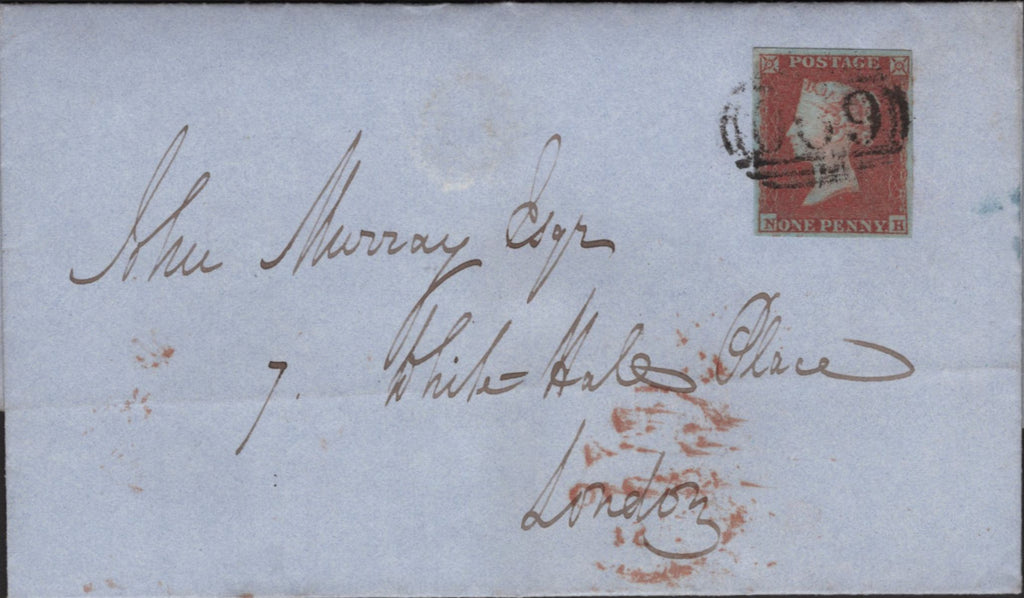 POSTAGE
N ONE PENNY H
John Murray Esqr
7. White Hall Place
London